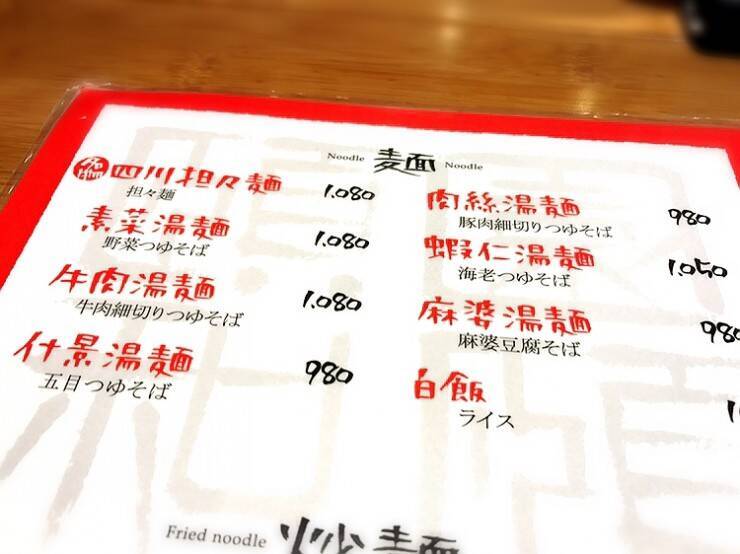 Noodle 麺 Noodle
名物 四川担々麺 1.080
担々麺
素菜湯麺 1.080
野菜つゆそば
牛肉湯麺 1.080
牛肉細切りつゆそば
什景湯麺 980
五目つゆそば
肉絲湯麺 980
豚肉細切りつゆそば
蝦仁湯麺 1.050
海老つゆそば
麻婆湯麺 980
麻婆豆腐そば
白飯
ライス
Fried noodle 炒麺